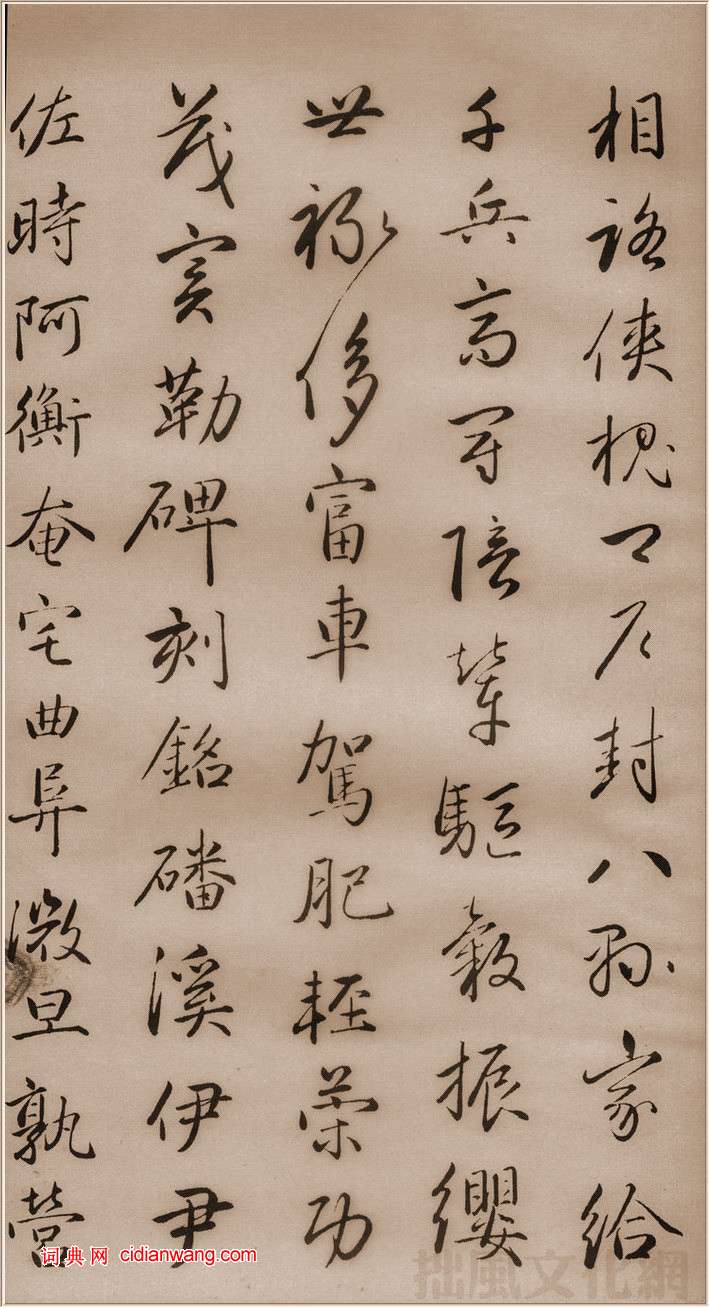 相路俠槐卿戶封八縣家給
千兵高冠陪輦驅轂振纓
世祿侈富車駕肥輕策功
茂實勒碑刻銘磻溪伊尹
佐時阿衡奄宅曲阜微旦孰營
词典网 cidianwang.com
拙風文化網